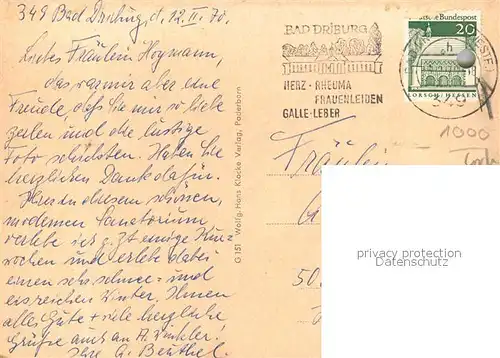 349 Bad Driburg, d. 12. II. 70.
Liebes Fräulein Hoymann,
das war mir aber eine
Freude, daß Sie mir so liebe
Zeilen und die lustige
Foto schickten. Haben Sie
herzlichen Dank dafür.
Hier in diesem schönen,
modernen Sanatorium
verlebe ich z. Zt. einige Kur-
wochen und erlebe dabei
einen sehr schnee- und
eisreichen Winter. Ihnen
alles Gute + viele herzliche
Grüße auch an A. Winkler!
Ihre G.
G 151 Wolfg. Hans Klocke Verlag, Paderborn
BAD DRIBURG
HERZ · RHEUMA
FRAUENLEIDEN
GALLE · LEBER
Deutsche Bundespost
20
LORSCH/HESSEN
349
1000
Fräulein
50
privacy protection
DARMSTADT@ANSICHTSKARTEN-CENTER.DE